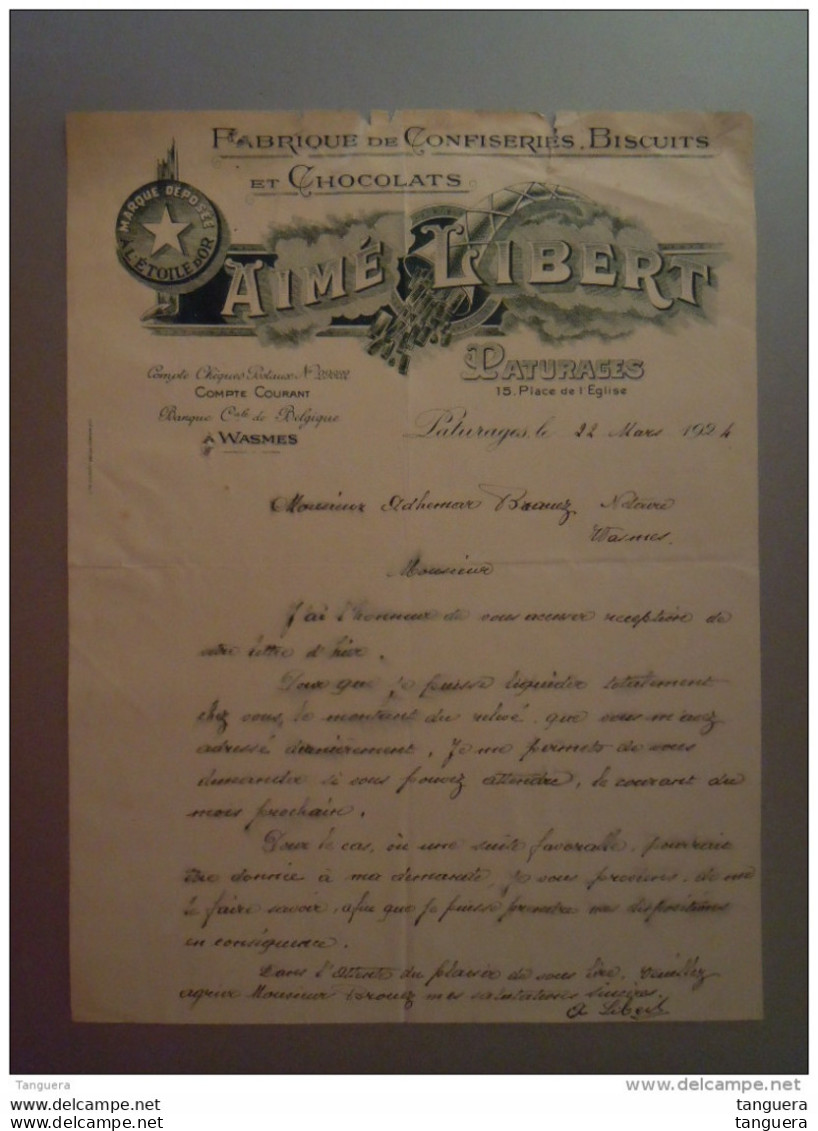 FABRIQUE DE CONFISERIES, BISCUITS
ET CHOCOLATS
MARQUE DÉPOSÉE
À L'ÉTOILE D'OR
AIMÉ LIBERT
PATURAGES
15, Place de l'Eglise
Compte Chèques Postaux N°
COMPTE COURANT
Banque Cale de Belgique
À WASMES
Paturages, le 22 Mars 1924
Monsieur Adhemar Notaire
Wasmes.
Monsieur
J'ai l'honneur de vous accuser reception de
votre lettre d'hier.
Pour que je puisse liquider totalement
chez vous, le montant du relevé que vous m'avez
adressé dernièrement, Je me permets de vous
demander si vous pouvez attendre, le courant du
mois prochain.
Pour le cas, où une suite favorable, pourrait
être donnée à ma demande, Je vous de me
le faire savoir, afin que je puisse prendre mes dispositions
en conséquence.
Dans l'attente du plaisir de vous lire, Veuillez
agréer Monsieur mes salutations sincères.
A Libert
Tanguera
delcampe.net
tanguera
tanguera
tanguera
tanguera